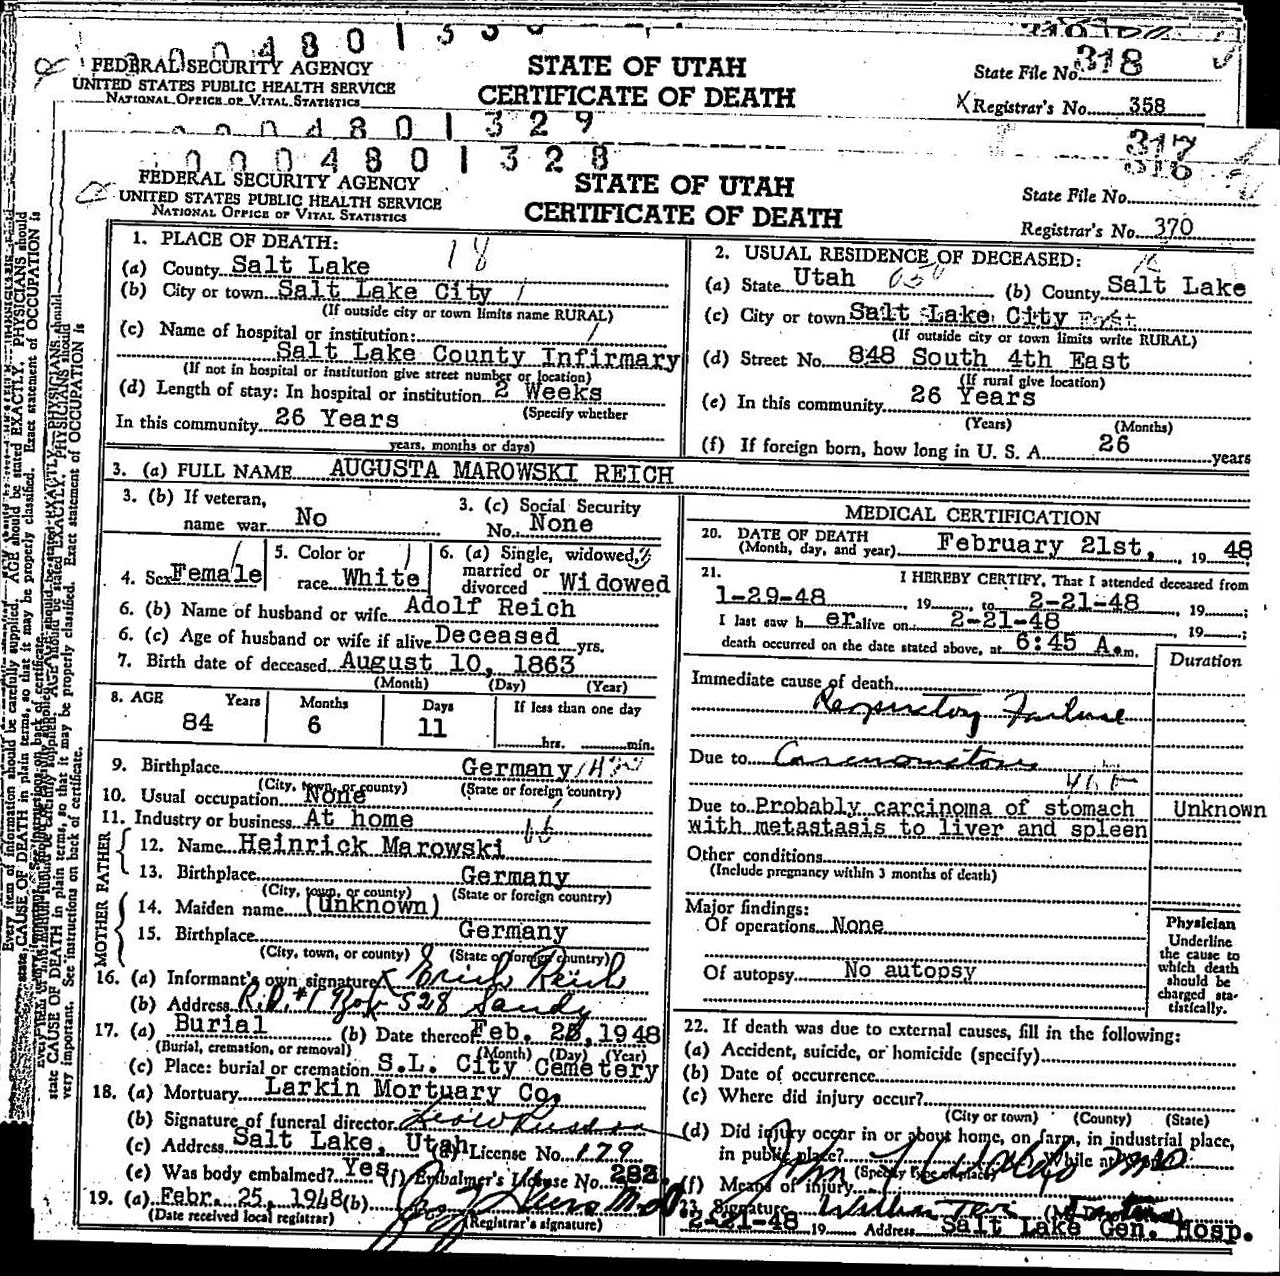 0004801330
318
FEDERAL SECURITY AGENCY
UNITED STATES PUBLIC HEALTH SERVICE
NATIONAL OFFICE OF VITAL STATISTICS
STATE OF UTAH
CERTIFICATE OF DEATH
State File No. 318
X Registrar's No. 358
0004801329
317
0004801328
316
FEDERAL SECURITY AGENCY
UNITED STATES PUBLIC HEALTH SERVICE
NATIONAL OFFICE OF VITAL STATISTICS
STATE OF UTAH
CERTIFICATE OF DEATH
State File No.
Registrar's No. 370
1. PLACE OF DEATH: 18
(a) County Salt Lake
(b) City or town Salt Lake City 1
(If outside city or town limits name RURAL)
(c) Name of hospital or institution:
Salt Lake County Infirmary
(If not in hospital or institution give street number or location)
(d) Length of stay: In hospital or institution 2 Weeks
(Specify whether
In this community 26 Years
years, months or days)
2. USUAL RESIDENCE OF DECEASED:
(a) State Utah (b) County Salt Lake
(c) City or town Salt Lake City
(If outside city or town limits write RURAL)
(d) Street No. 848 South 4th East
(If rural give location)
(e) In this community 26 Years
(Years) (Months)
(f) If foreign born, how long in U. S. A. 26 years
3. (a) FULL NAME AUGUSTA MAROWSKI REICH
3. (b) If veteran,
name war No
3. (c) Social Security
No. None
4. Sex Female
5. Color or
race White
6. (a) Single, widowed,
married or
divorced Widowed
6. (b) Name of husband or wife Adolf Reich
6. (c) Age of husband or wife if alive Deceased yrs.
7. Birth date of deceased August 10, 1863
(Month) (Day) (Year)
8. AGE Years Months Days If less than one day
84 6 11 hrs. min.
9. Birthplace Germany
(City, town, or county) (State or foreign country)
10. Usual occupation None
11. Industry or business At home
FATHER
12. Name Heinrick Marowski
13. Birthplace Germany
(City, town, or county) (State or foreign country)
MOTHER
14. Maiden name (Unknown)
15. Birthplace Germany
(City, town, or county) (State or foreign country)
16. (a) Informant's own signature X Erich Reich
(b) Address R.D. #1 Box 528 Sandy
17. (a) Burial (b) Date thereof Feb. 1948
(Burial, cremation, or removal) (Month) (Day) (Year)
(c) Place: burial or cremation S.L. City Cemetery
18. (a) Mortuary Larkin Mortuary Co.
(b) Signature of funeral director
(c) Address Salt Lake, Utah (d) License No. 179
(e) Was body embalmed? Yes (f) Embalmer's License No. 282
19. (a) Febr. 25, 1948 (b)
(Date received local registrar) (Registrar's signature)
MEDICAL CERTIFICATION
20. DATE OF DEATH
(Month, day, and year) February 21st, 19 48
21. I HEREBY CERTIFY, That I attended deceased from
1-29-48, 19 , to 2-21-48, 19 ;
I last saw h er alive on 2-21-48, 19 ;
death occurred on the date stated above, at 6:45 A.m.
Duration
Immediate cause of death
Respiratory Failure
Due to Carcinomatosis
Due to Probably carcinoma of stomach Unknown
with metastasis to liver and spleen
Other conditions
(Include pregnancy within 3 months of death)
Major findings:
Of operations None
Of autopsy No autopsy
Physician
Underline
the cause to
which death
should be
charged sta-
tistically.
22. If death was due to external causes, fill in the following:
(a) Accident, suicide, or homicide (specify)
(b) Date of occurrence
(c) Where did injury occur?
(City or town) (County) (State)
(d) Did injury occur in or about home, on farm, in industrial place,
in public place? While at
(Specify type of place)
(f) Means of injury
23. Signature
2-21-48 19 Address Salt Lake Gen. Hosp.